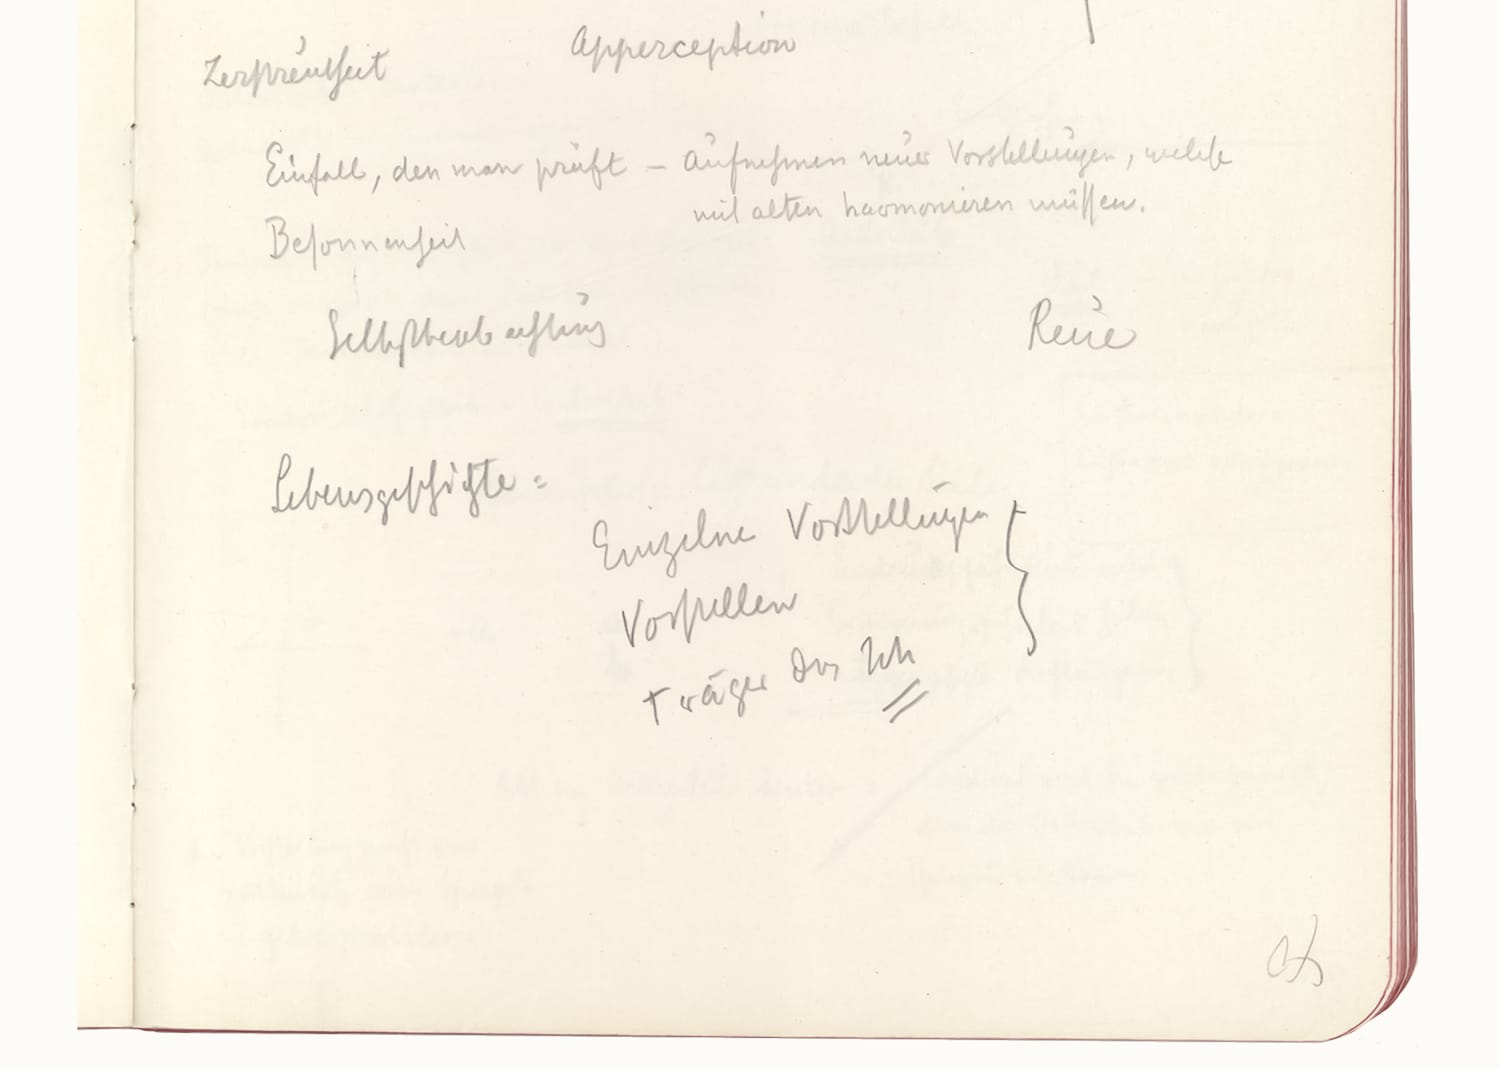 Zerstreutheit Apperception
Einfall, den man prüft – Aufnehmen neuer Vorstellungen, welche
mit alten harmonieren müssen.
Besonnenheit
Selbstbeobachtung Reue
Lebensgeschichte:
Einzelne Vorstellungen
Vorstellen
Träger das Ich